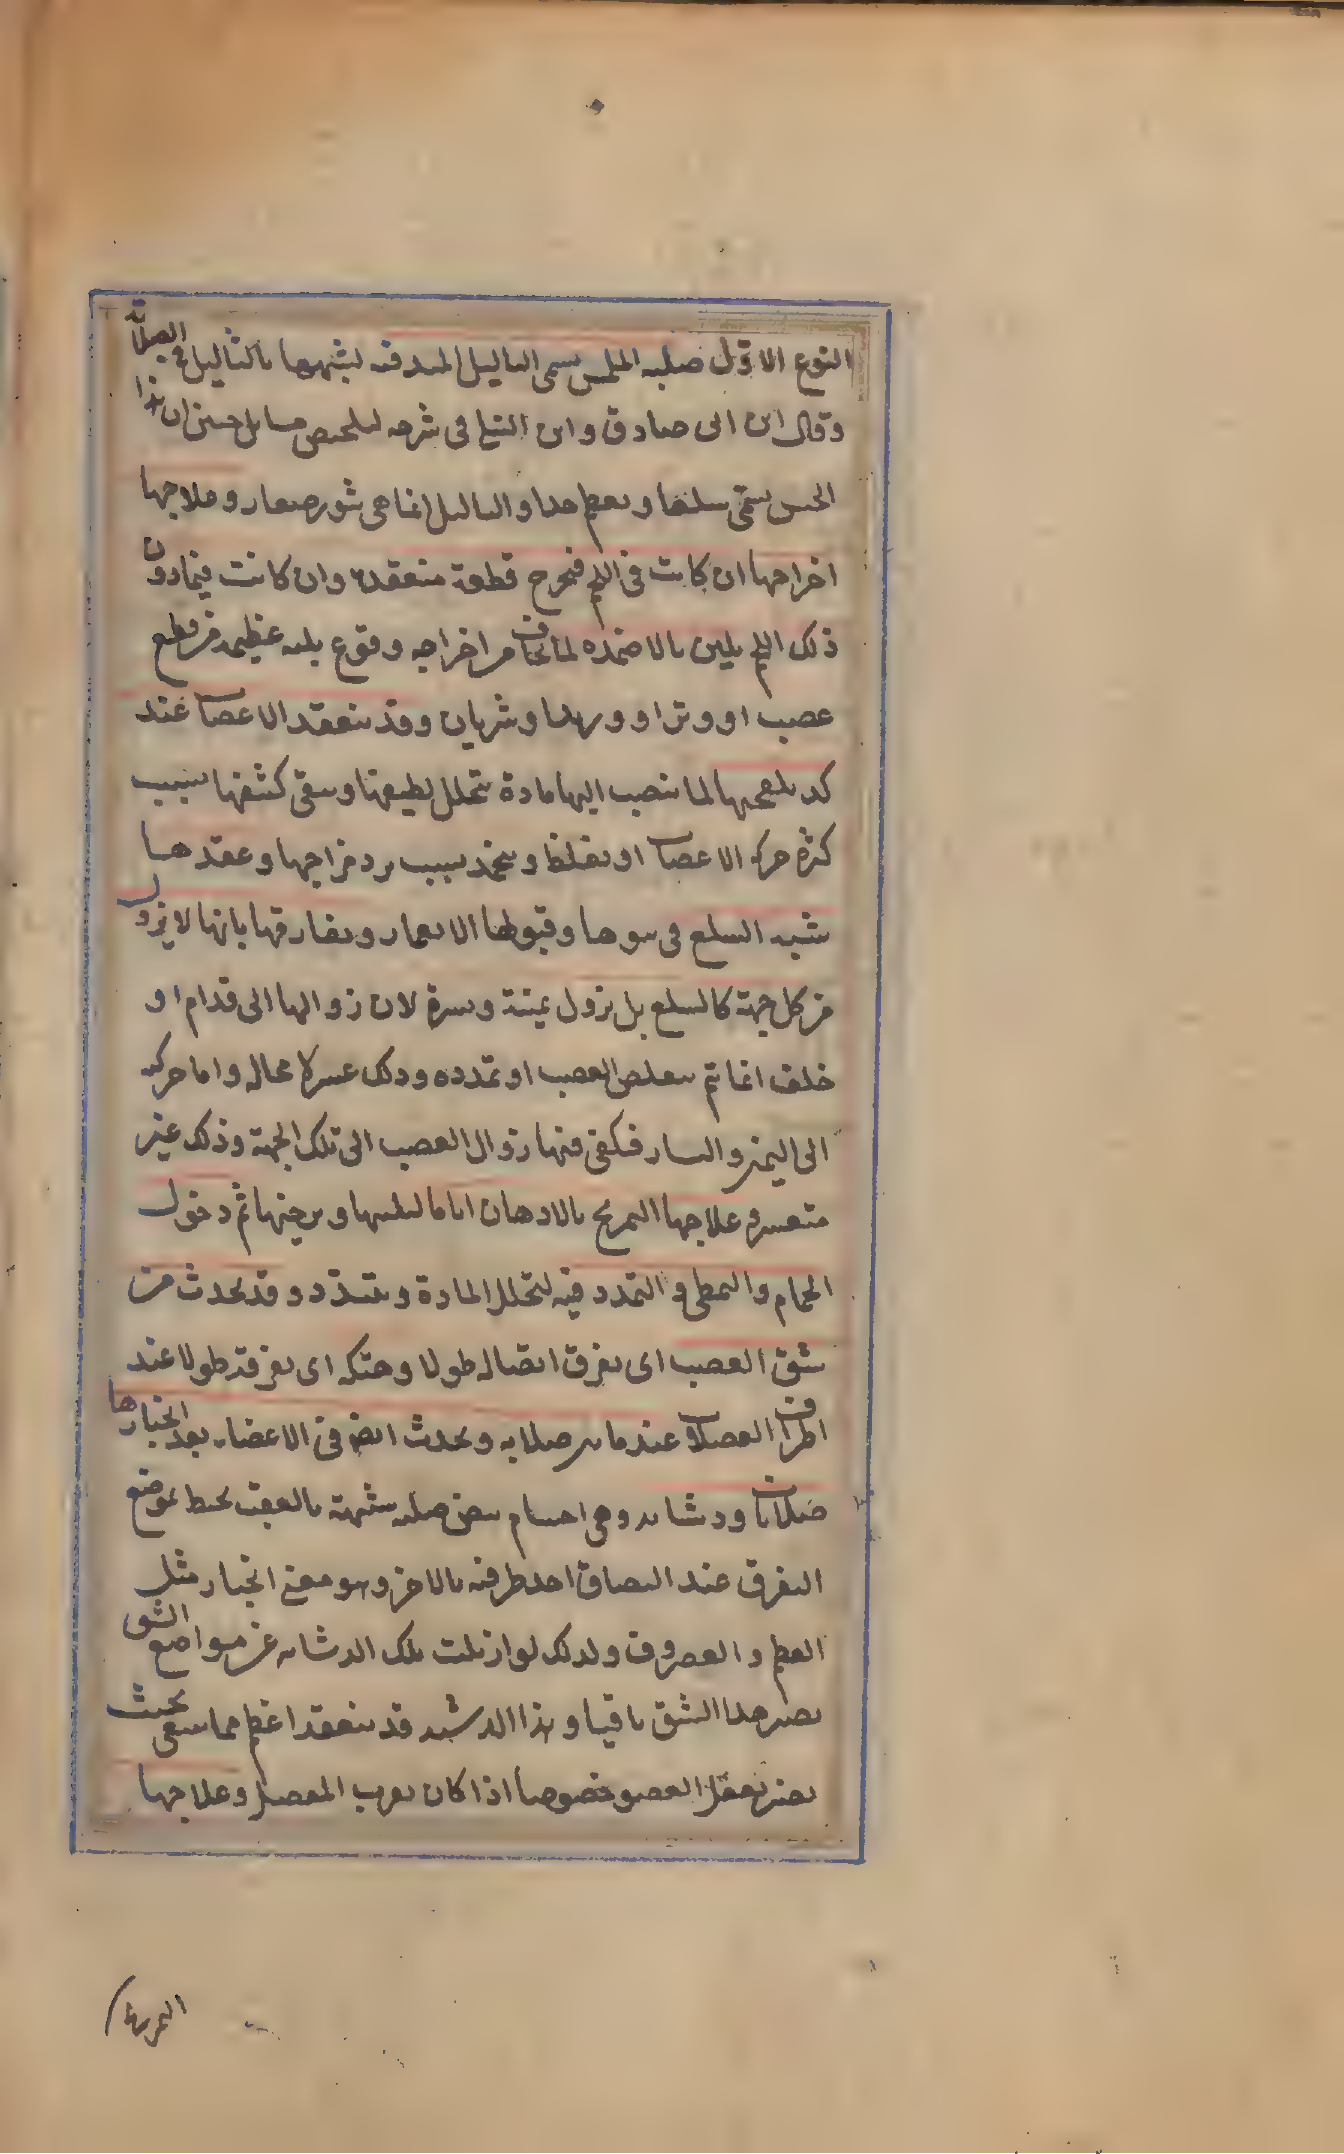 النوع الاول صلبه الملمس يسمى الثاليل المدفنه لشبهها بالثاليل فى الصلابة
وقال ابن ابى صادق وابن التياح فى شرحه لتلخيص مسايل حنين ان هذا
الجنس يسمى سلعا ويعظم جدا والثاليل انما هى بثور صغار وعلاجها
اخراجها ان كانت فى اللحم فيخرج قطعة منعقدة وان كانت فيما دون
ذلك اللحم يلين بالاضمده لما يخاف من اخراجه وقوع بليه عظيمه من قطع
عصب او وتر او وريد او شريان وقد ينعقد الاعصاب عند
كد يلحقها لما ينصب اليها مادة يتحلل لطيفها ويبقى كثيفها بسبب
كثرة حركه الاعصاب او يغلظ ويجمد بسبب برد مزاجها وعقدها
شبه السلع فى نتوها وقبولها الانغمار ويفارقها بانها لا يزول
من كل جهة كالسلع بل يزول يمنة ويسرة لان زوالها الى قدام او
خلف انما يتم بتقلص العصب او تمدده وذلك عسر لا محاله واما حركته
الى اليمين واليسار فيكفى فيها زوال العصب الى تلك الجهة وذلك غير
متعسر وعلاجها التمريخ بالادهان اياما ليلينها ويرخيها ثم دخول
الحمام والتمطى والتمدد فيه لتحلل المادة ويتبدد وقد يحدث من
شق العصب اى تفرق اتصاله طولا وهتكه اى تفرقه طولا عند
اطراف العضلات عندما يبرأ صلابه ويحدث ايضا فى الاعضاء بعد انجبارها
صلابات ودشابد وهى اجسام بيض صلبه شبيهة بالعقب يحيط بموضع
التفرق عند التصاق احد طرفيه بالاخر وهو معنى انجبار مثل
العظم والغضروف ولذلك لو ازيلت تلك الدشابد عن مواضع الشق
يصير هذا الشق باقيا وهذا الدشبد قد ينعقد اعظم مما ينبغى بحيث
يضر بفعل العضو خصوصا اذا كان بقرب المفصل وعلاجها
التمريخ